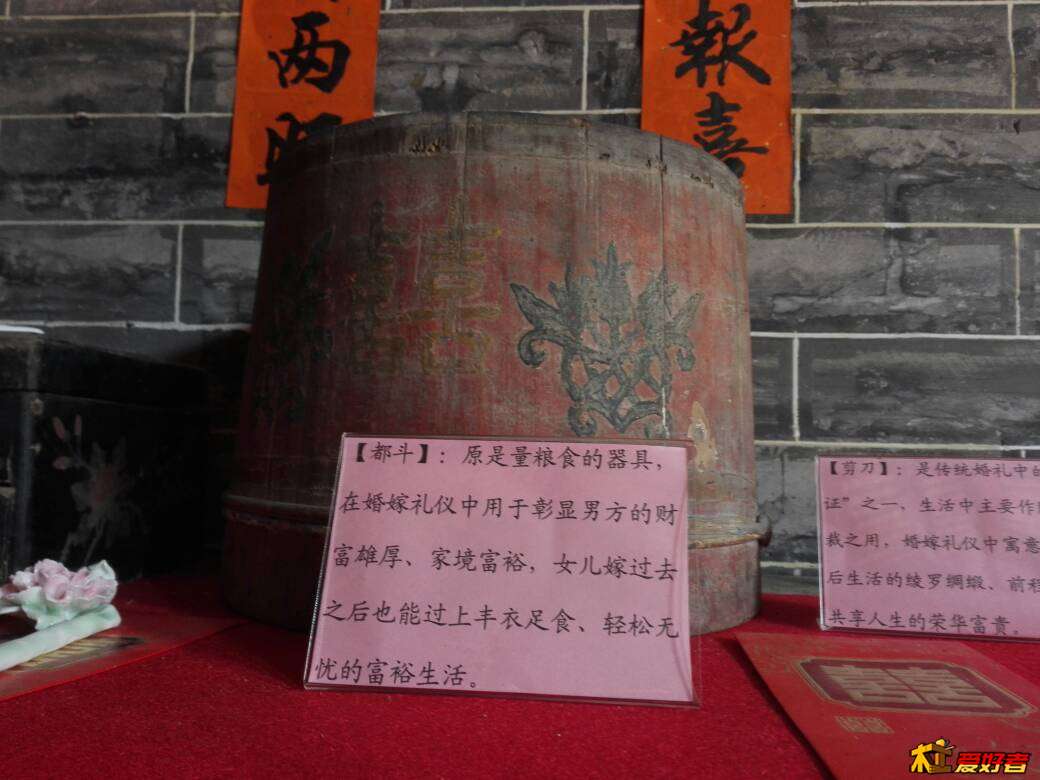 两
報
喜
囍
【都斗】:原是量粮食的器具,
在婚嫁礼仪中用于彰显男方的财
富雄厚、家境富裕,女儿嫁过去
之后也能过上丰衣足食、轻松无
忧的富裕生活。
【剪刀】:是传统婚礼中的
证”之一,生活中主要作
裁之用,婚嫁礼仪中寓意
后生活的绫罗绸缎、前程
共享人生的荣华富贵。
囍
爱好者